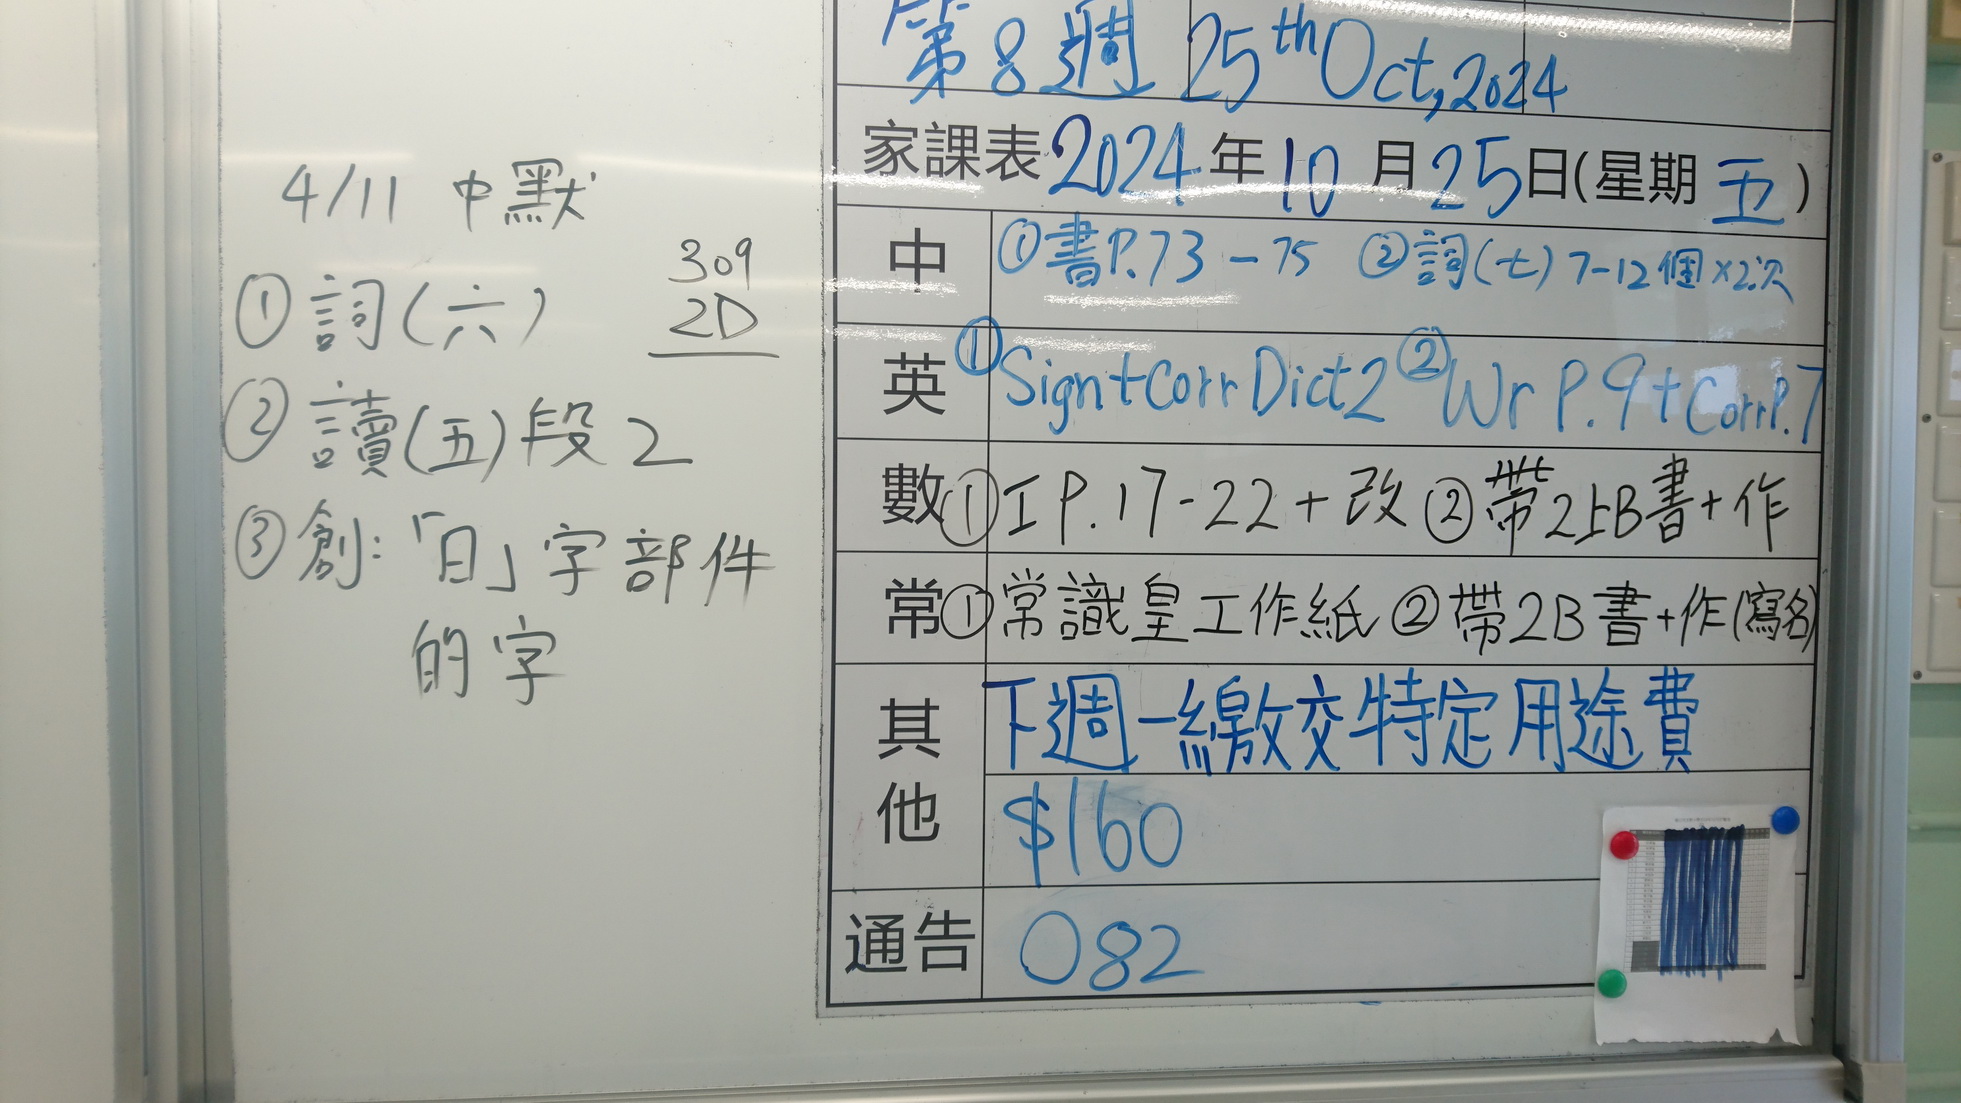 4/11 中默
309
2D
①詞(六)
②讀(五)段2
③創:「日」字部件
的字
第8週 25th Oct, 2024
家課表 2024年10月25日(星期五)
中 ①書P.73-75 ②詞(七)7-12個×2次
英 ①Sign+Corr Dict2 ②Wr P.9+Corr P.7
數 ①工P.17-22+改 ②帶2上B書+作
常 ①常識皇工作紙 ②帶2B書+作(寫名)
其他 下週一繳交特定用途費
$160
通告 082